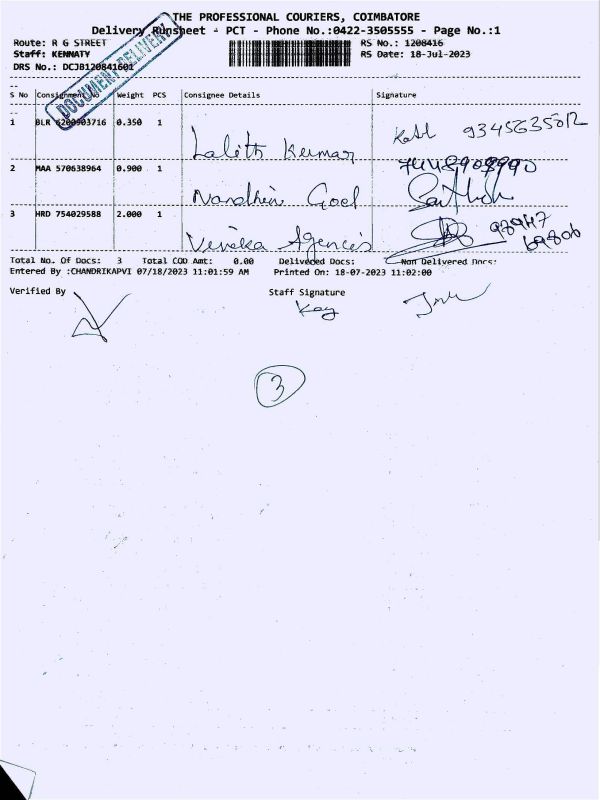 THE PROFESSIONAL COURIERS, COIMBATORE
Delivery Runsheet - PCT - Phone No.:0422-3505555 - Page No.:1
Route: R G STREET RS No.: 1208416
Staff: KENNATY RS Date: 18-Jul-2023
DRS No.: DCJB120841601
DOCUMENT DELIVERY
S No Consignment No Weight PCS Consignee Details Signature
1 BLR 6200903716 0.350 1
Lalith Kumar 9345635012
2 MAA 570638964 0.900 1 7448908990
Nandhin Goel
3 HRD 754029588 2.000 1 98947
Viveka Agencies 69806
Total No. Of Docs: 3 Total COD Amt: 0.00 Delivered Docs: Non Delivered Docs:
Entered By :CHANDRIKAPVI 07/18/2023 11:01:59 AM Printed On: 18-07-2023 11:02:00
Verified By Staff Signature
3